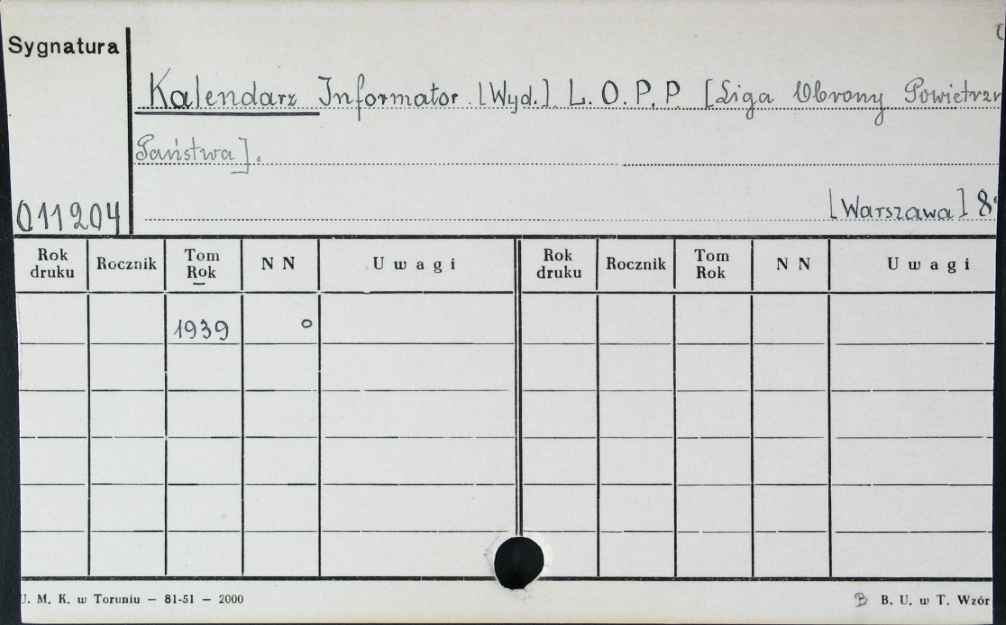 Sygnatura
Kalendarz Informator. [Wyd.] L. O. P. P. [Liga Obrony Powietrzn
Państwa].
011204
[Warszawa] 8°
Rok druku Rocznik Tom Rok N N Uwagi Rok druku Rocznik Tom Rok N N Uwagi
1939 o
U. M. K. w Toruniu — 81-51 — 2000 B. U. w T. Wzór